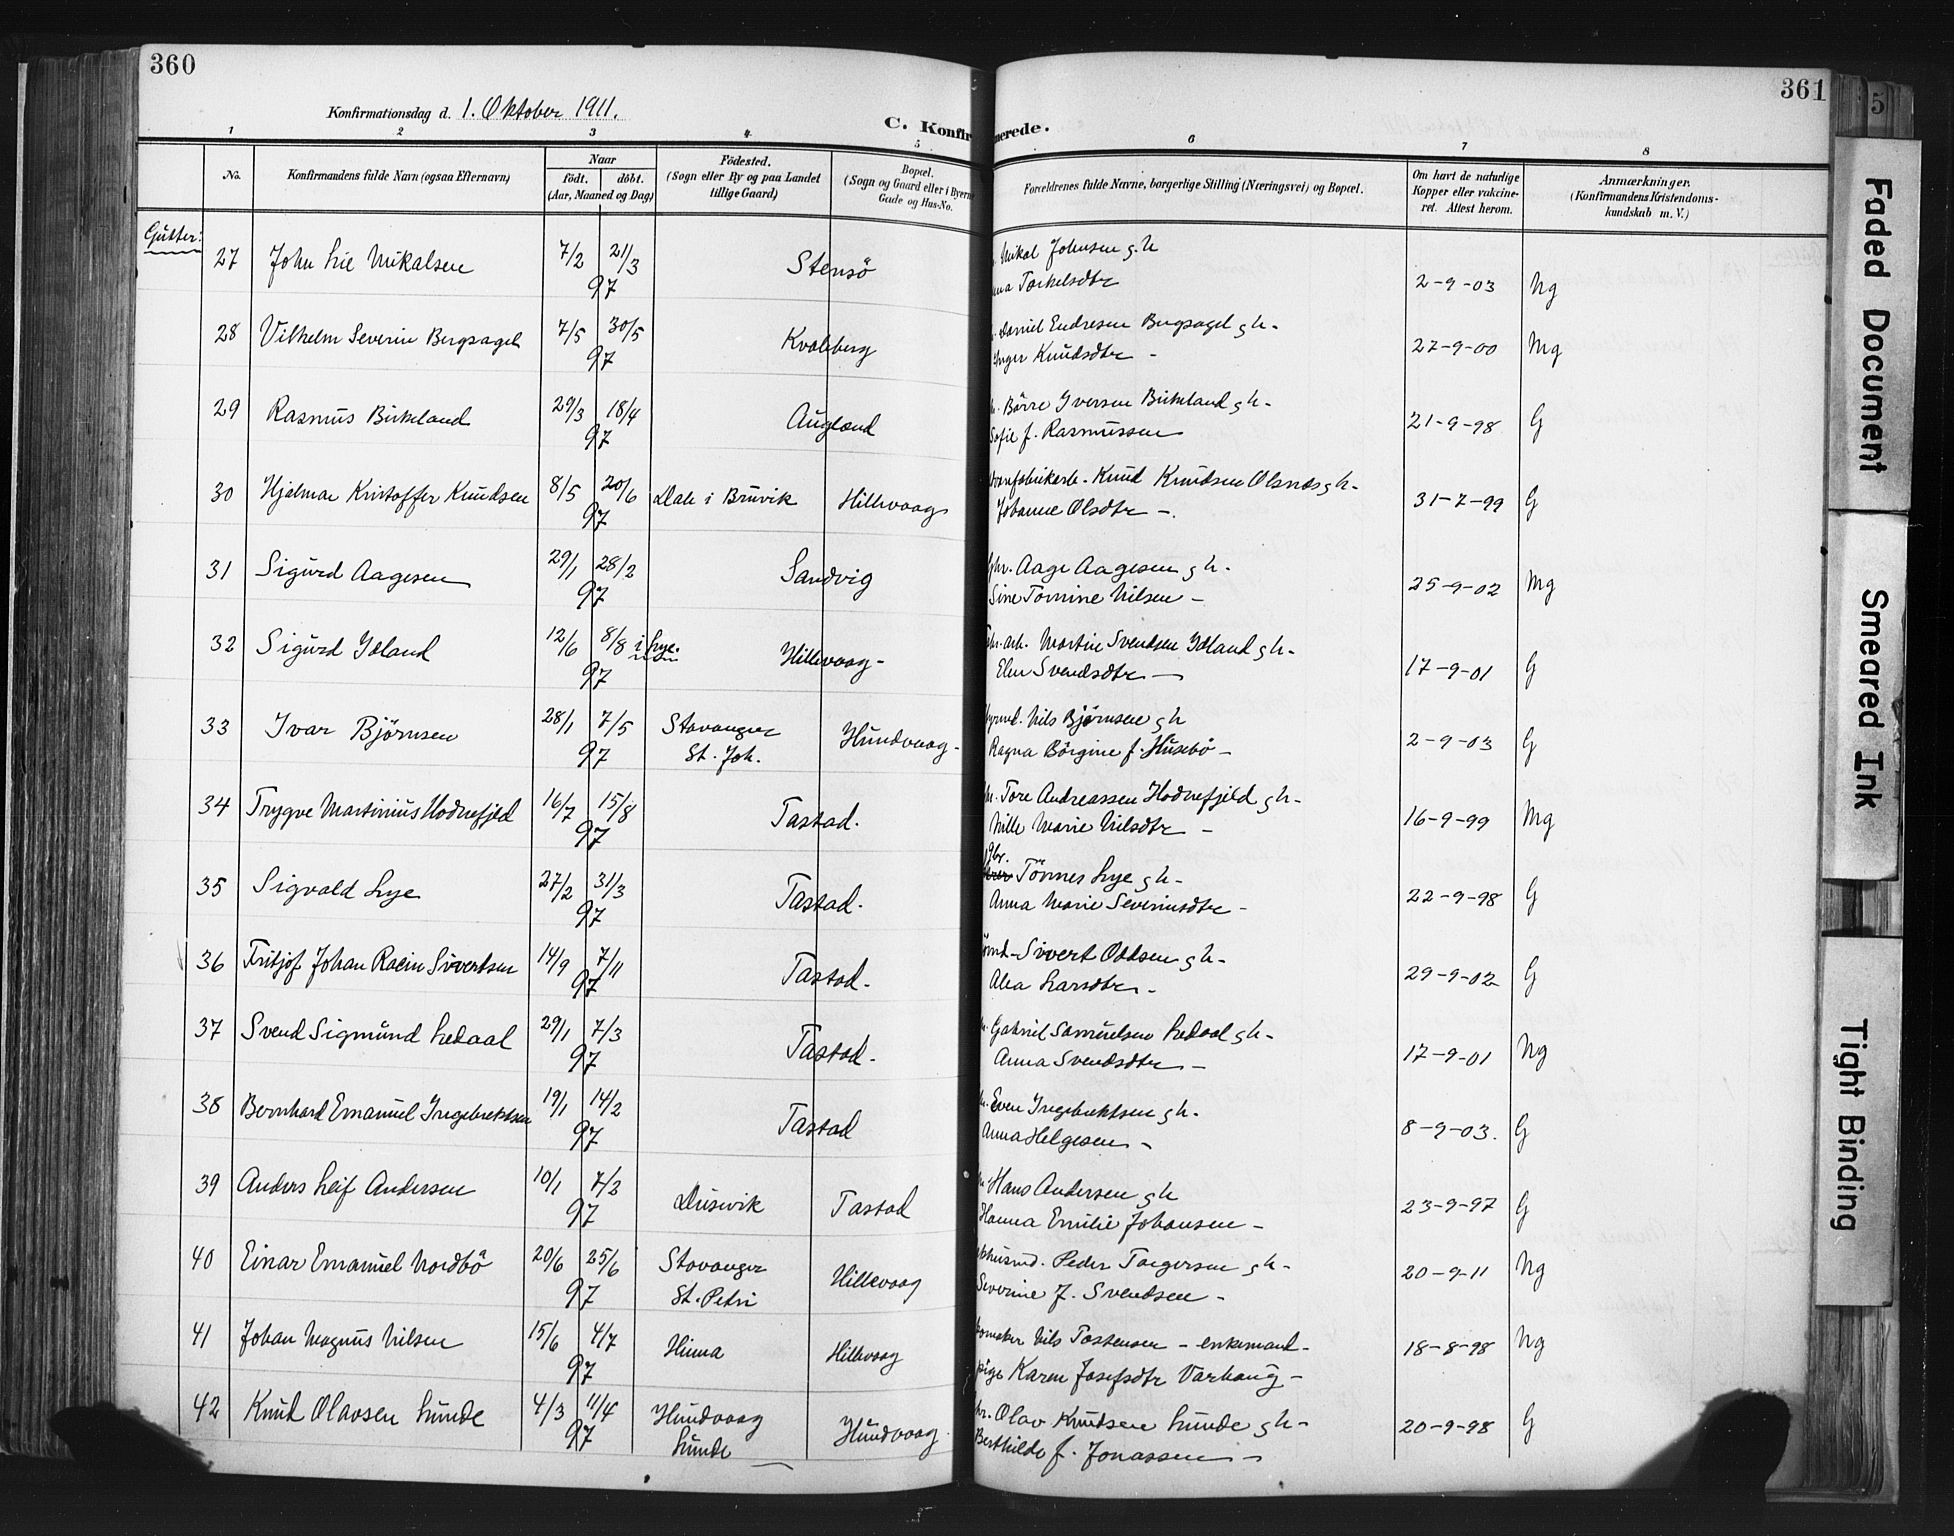 360
361
Konfirmationsdag d. 1. Oktober 1911.
C. Konfirmerede.
1 2 3 4 5 6 7 8
No.
Konfirmandens fulde Navn (ogsaa Efternavn)
Naar
födt. döbt.
(Aar, Maaned og Dag)
Födested.
(Sogn eller By og paa Landet
tillige Gaard)
Bopæl.
(Sogn og Gaard eller i Byerne
Gade og Hus-No.
Forældrenes fulde Navne, borgerlige Stilling (Næringsvei) og Bopæl.
Om havt de naturlige
Kopper eller vakcine-
ret. Attest herom.
Anmærkninger.
(Konfirmandens Kristendoms-
kundskab m. V.)
Gutter:
27 John Lie Mikalsen 7/2 21/3 97 Stensö
Mikal Johnsen g h
Torkelsdtr 2-9-03 Ng
28 Vilhelm Severin Bergsagel 7/5 30/5 97 Kvaleberg
Daniel Endresen Bergsagel g h-
Inger Knudsdtr - 27-9-00 Mg
29 Rasmus Birkeland 29/3 18/4 97 Augland
Börre Iversen Birkeland g h-
Sofie f. Rasmussen 21-9-98 G
30 Hjalmar Kristoffer Knudsen 8/5 20/6 97 Dale i Bruvik Hillevaag
Knud Knudsen Olsnes g h-
Johanne Olsdtr -. 31-7-99 G
31 Sigurd Aagesen 29/1 28/2 97 Sandvig
Aage Aagesen g h-
Sine Tomine Nilsen - 25-9-02 Mg
32 Sigurd Ueland 12/6 8/8 i Lye. 97 Hillevaag-
Martin Svendsen Ueland g h-
Elen Svendsdtr - 17-9-01 G
33 Ivar Björnsen 28/1 7/5 97 Stavanger St. Joh. Hundvaag-
Nils Björnsen g h
Ragna Börgine f. Husebö - 2-9-03 G
34 Trygve Martinius Hodnefjeld 16/7 15/8 97 Tastad.
Tore Andreassen Hodnefjeld g h-
Nille Marie Nilsdtr - 16-9-99 Mg
35 Sigvald Lye 27/2 31/3 97 Tastad.
Tönnes Lye g h-
Anna Marie Severinsdtr - 22-9-98 G
36 Fritjof Johan Racin Sivertsen 14/9 7/11 97 Tastad-
Sivert Oddsen g h-
Alea Larsdtr - 29-9-02 G
37 Svend Sigmund Ledaal 29/1 7/3 97 Tastad-
Gabriel Samuelsen Ledaal g h-
Anna Svendsdtr - 17-9-01 Ng
38 Bernhard Emanuel Ingebrektsen 19/1 14/2 97 Tastad
Even Ingebrektsen g h-
Anna Helgesen - 8-9-03. G
39 Anders Leif Andersen 10/1 7/2 97 Dusevik Tastad
Hans Andersen g h
Hanna Emilie Johansen - 23-9-97 G
40 Einar Emanuel Nordbö 20/6 25/6 97 Stavanger St. Petri Hillevaag
Peder Torgersen g h-
Severine f. Svendsen - 20-9-11 Ng
41 Johan Magnus Nilsen 15/6 4/7 97 Hinna Hillevaag
Nils Tostensen - enkemand-
pige Karen Josefsdtr Varhaug - 18-8-98 Ng
42 Knud Olavsen Lunde 4/3 11/4 97 Hundvaag Lunde Hundvaag
Olav Knudsen Lunde g h-
Berthilde f. Jonassen - 20-9-98 G
5
Faded Document
Smeared Ink
Tight Binding